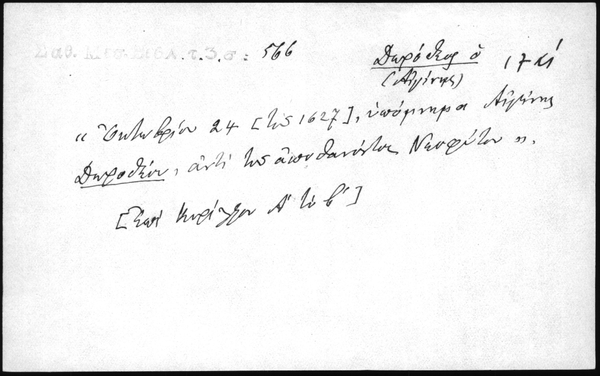 Σαθ. Μεσ. Βιβλ. τ. 3, σ: 566
Δωρόθεος ὁ 17 κ'
(Αἰγίνης)
"Ὀκτωβρίου 24 [τοῦ 1627], ὑπόμνημα Αἰγίνης
Δωροθέου, ἀντὶ τοῦ ἀποθανόντος Νεοφύτου".
[Ἐπὶ Κυρίλλου Α' τὸ β']